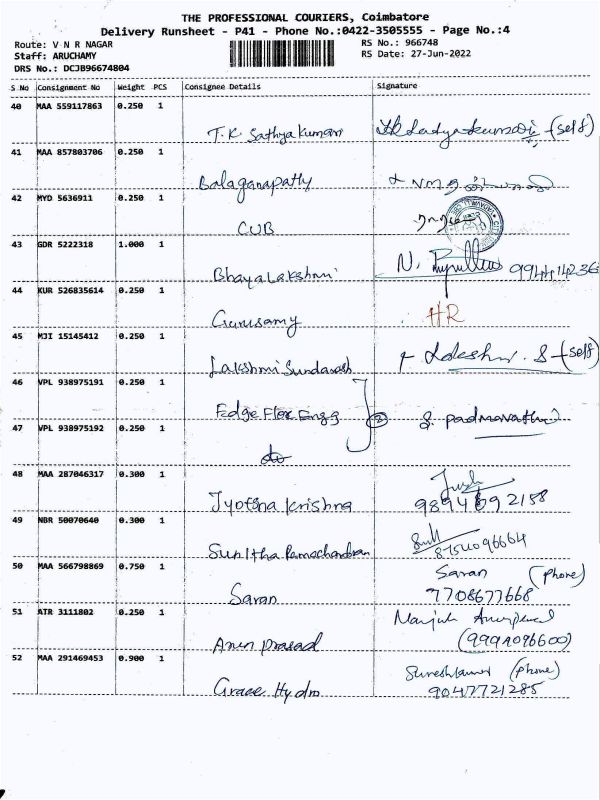 THE PROFESSIONAL COURIERS, Coimbatore
Delivery Runsheet - P41 - Phone No.:0422-3505555 - Page No.:4
Route: V N R NAGAR
RS No.: 966748
Staff: ARUCHAMY
RS Date: 27-Jun-2022
DRS No.: DCJB96674804
S No Consignment No Weight PCS Consignee Details Signature
40 MAA 559117863 0.250 1
T.K Sathyakumar (self)
41 MAA 857803706 0.250 1
Balaganapathy
42 MYD 5636911 0.250 1
CUB
43 GDR 5222318 1.000 1
Bhayalakshmi N.
44 KUR 526835614 0.250 1
Gurusamy HR
45 MJI 15145412 0.250 1
Lakshmi (self)
46 VPL 938975191 0.250 1
Edge Flex Engg 2 S. Padmavathi
47 VPL 938975192 0.250 1
do
48 MAA 287046317 0.300 1
Jyotsna Krishna
49 NBR 50070640 0.300 1
Sunitha Ramachandran
50 MAA 566798869 0.750 1
Saran (Phone)
Saran 7708677668
51 ATR 3111802 0.250 1
Arun Prasad
52 MAA 291469453 0.900 1
Sureshkumar (Phone)
Grace Hydro 9047721285